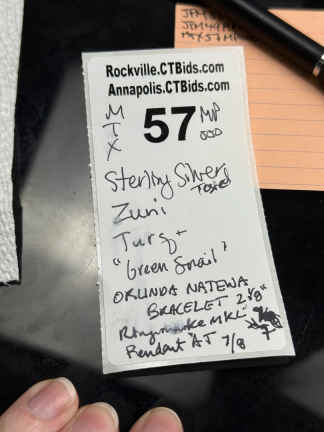 Rockville.CTBids.com
Annapolis.CTBids.com
MTX 57 MP
Sterling Silver
Tested
Zuni
Turq +
"Green Snail"
ORLINDA NATEWA
BRACELET 2 1/8"
Ring marke MKL
Pendant "AJ 7/8